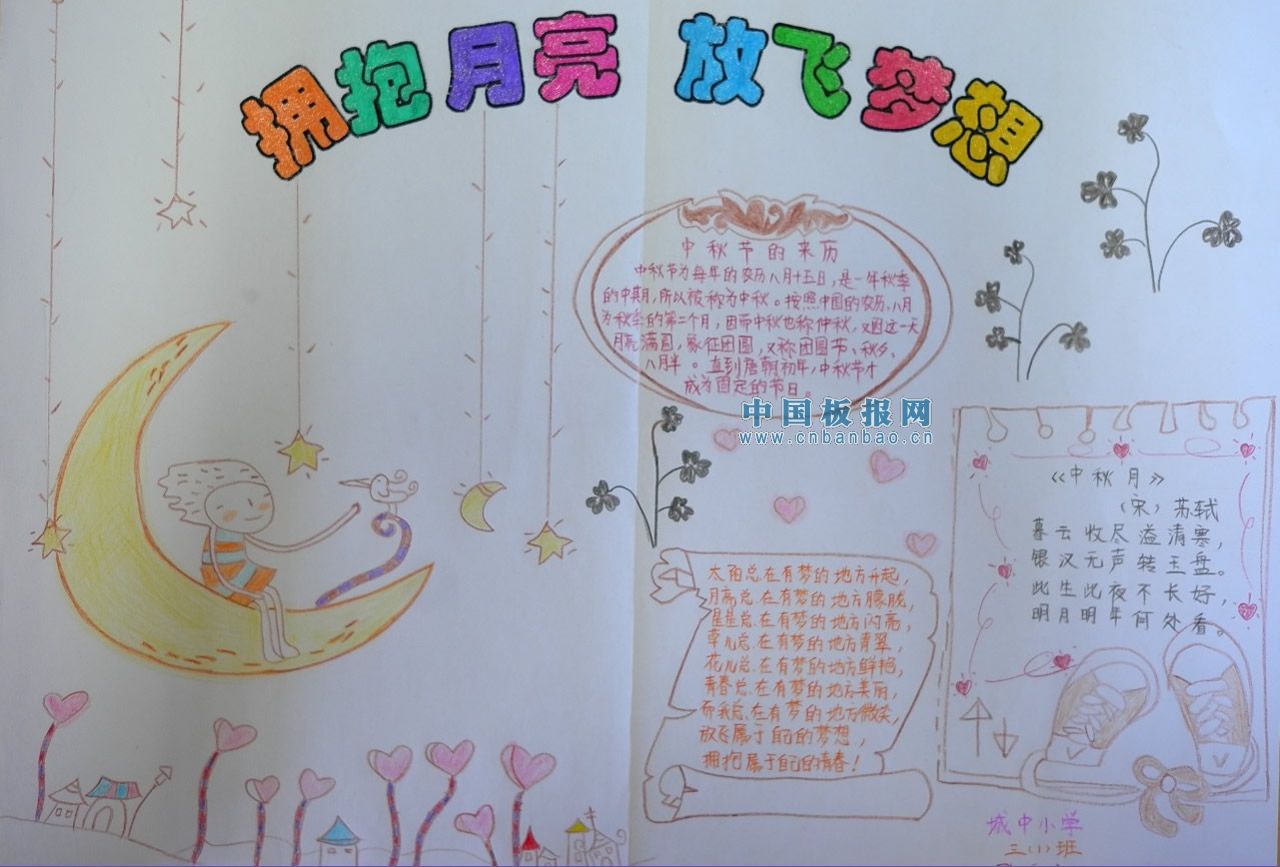 拥抱月亮 放飞梦想
中秋节的来历
中秋节为每年的农历八月十五日,是一年秋季
的中期,所以被称为中秋。按照中国的农历,八月
为秋季的第二个月,因而中秋也称仲秋,又因这一天
月亮满圆,象征团圆,又称团圆节、秋夕、
八月半。直到唐朝初年,中秋节才
成为固定的节日。
中国板报网
www.cnbanbao.cn
太阳总在有梦的地方升起,
月亮总在有梦的地方朦胧,
星星总在有梦的地方闪亮,
草儿总在有梦的地方青翠,
花儿总在有梦的地方鲜艳,
青春总在有梦的地方美丽,
而我总在有梦的地方微笑,
放飞属于自己的梦想,
拥抱属于自己的青春!
《中秋月》
(宋)苏轼
暮云收尽溢清寒,
银汉无声转玉盘。
此生此夜不长好,
明月明年何处看。
城中小学
三(1)班